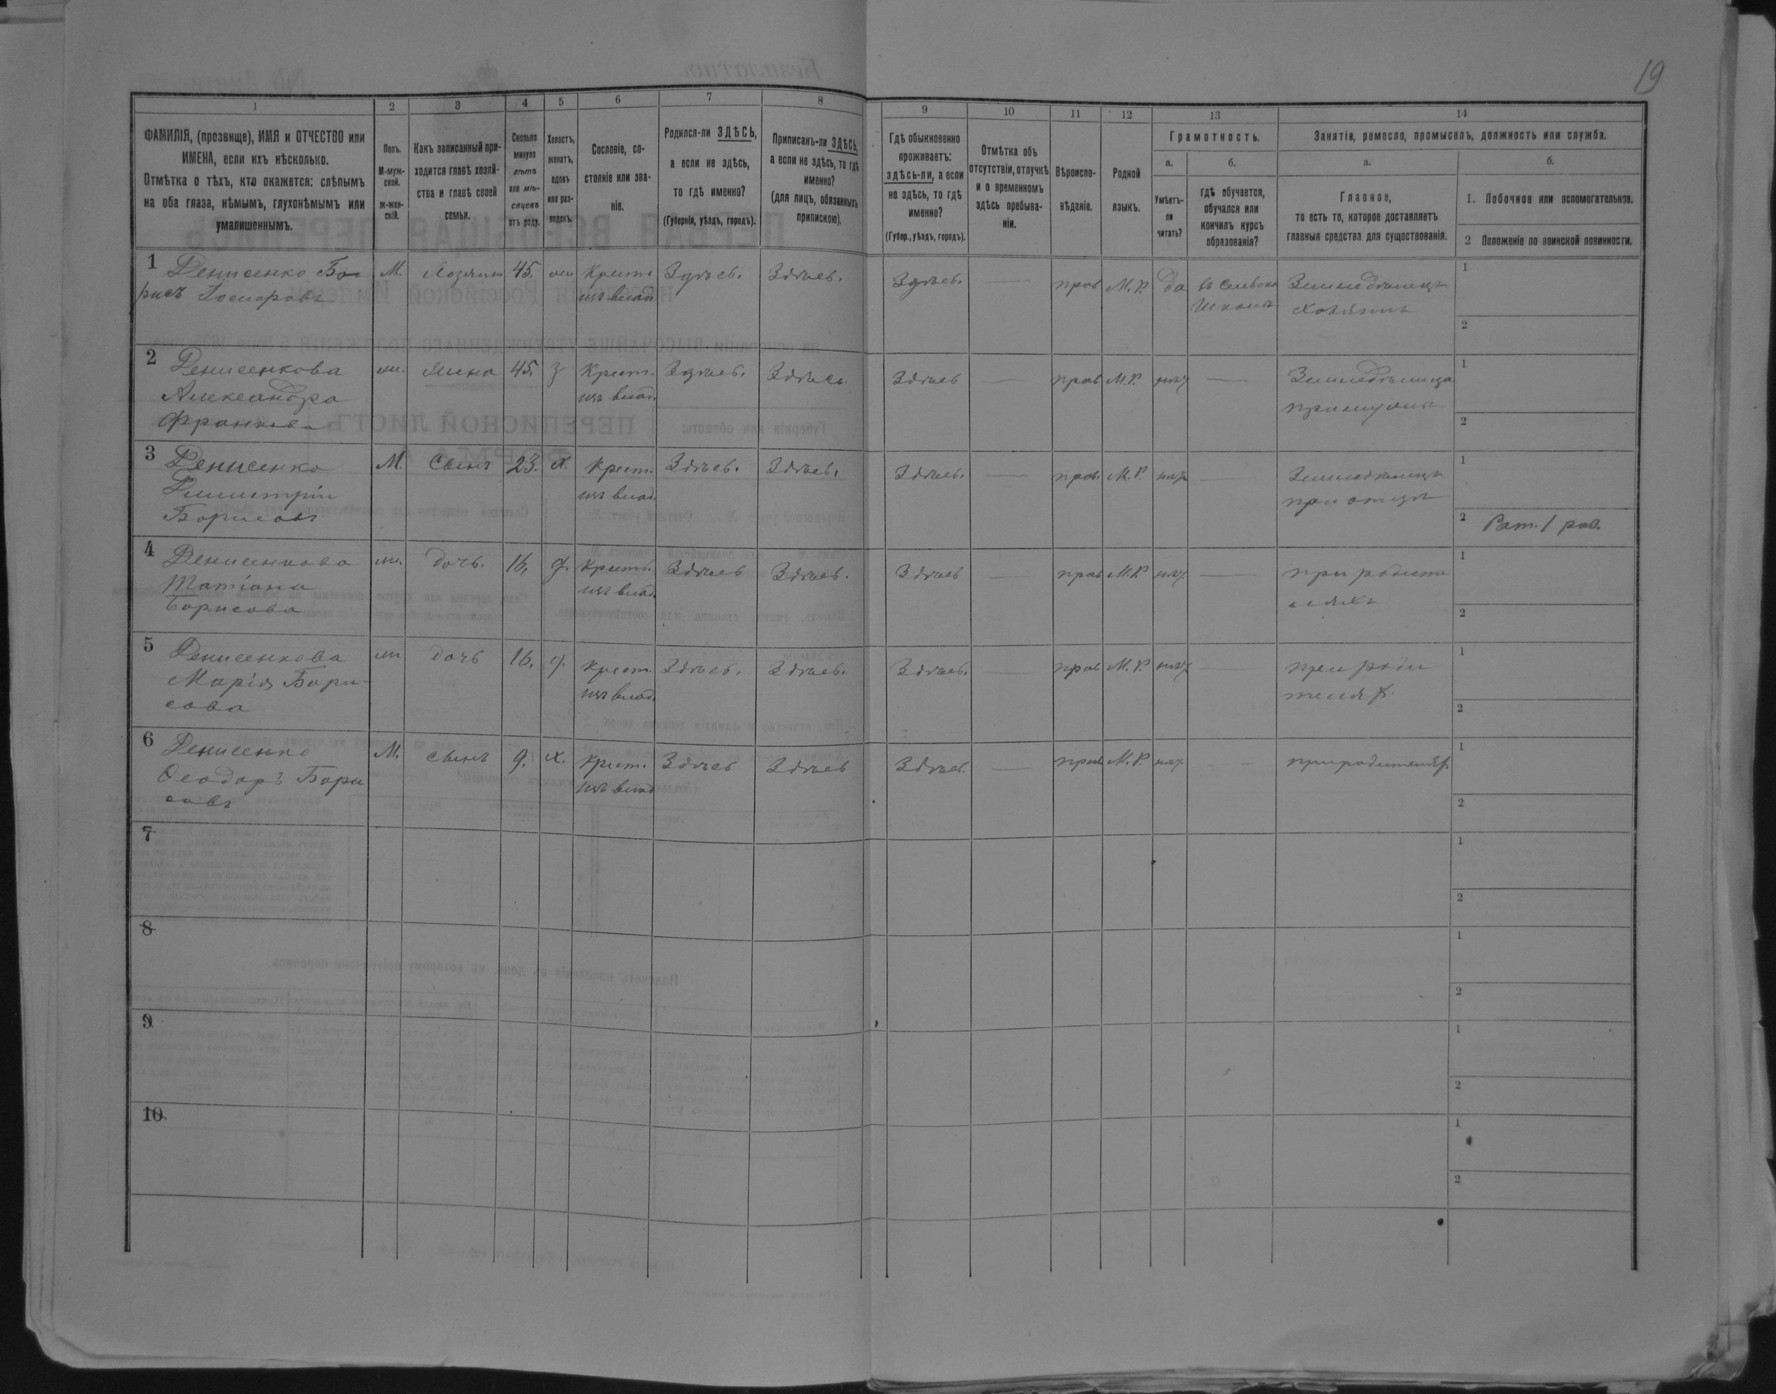 19
1 2 3 4 5 6 7 8 9 10 11 12 13 14
ФАМИЛІЯ, (прозвище), ИМЯ и ОТЧЕСТВО или
ИМЕНА, если ихъ нѣсколько.
Отмѣтка о тѣхъ, кто окажется: слѣпымъ
на оба глаза, нѣмымъ, глухонѣмымъ или
умалишеннымъ.
Полъ.
М-муж-
ской.
ж-жен-
скій.
Какъ записанный при-
ходится главѣ хозяй-
ства и главѣ своей
семьи.
Сколько
минуло
лѣтъ
или мѣ-
сяцевъ
отъ роду.
Холостъ,
женатъ,
вдовъ
или раз-
веденъ.
Сословіе, со-
стояніе или зва-
ніе.
Родился-ли ЗДѢСЬ,
а если не здѣсь,
то гдѣ именно?
(Губернія, уѣздъ, городъ).
Приписанъ-ли ЗДѢСЬ,
а если не здѣсь, то гдѣ
именно?
(для лицъ, обязанныхъ
припискою).
Гдѣ обыкновенно
проживаетъ:
здѣсь-ли, а если
не здѣсь, то гдѣ
именно?
(Губер., уѣздъ, городъ).
Отмѣтка объ
отсутствіи, отлучкѣ
и о временномъ
здѣсь пребыва-
ніи.
Вѣроиспо-
вѣданіе.
Родной
языкъ.
Грамотность.
а.
Умѣетъ-
ли
читать?
б.
гдѣ обучается,
обучался или
кончилъ курсъ
образованія?
Занятія, ремесло, промыселъ, должность или служба.
а.
Главное,
то есть то, которое доставляетъ
главныя средства для существованія.
б.
1. Побочное или вспомогательное.
2 Положеніе по воинской повинности.
1 Денисенко Бо М. 45. Крест. Здѣсь. Здѣсь. Здѣсь. — прав М.Р. да Земледѣлецъ 1
рисъ изъ влад. хозяинъ
2
2 Денисенкова 45. Крест. Здѣсь. Здѣсь. Здѣсь — прав М.Р. — 1
Александра изъ влад.
2
3 Денисенко М. сынъ 23. х. Крест. Здѣсь. Здѣсь. Здѣсь. — прав. М.Р. — Земледѣлецъ 1
Димитрій изъ влад. при отцѣ
Борисовъ 2 Рат. 1 раз.
4 Денисенкова дочь. 16. Крест. Здѣсь Здѣсь. Здѣсь — прав М.Р. — при родите 1
Татіана изъ влад. ляхъ
Борисова 2
5 Денисенкова дочь 16. Крест. Здѣсь. Здѣсь. Здѣсь. — прав М.Р. — при роди 1
Марія Бори изъ влад. теляхъ
сова 2
6 Денисенко М. сынъ 9. х. Крест. Здѣсь Здѣсь Здѣсь. — прав М.Р. — при родителях. 1
Ѳеодоръ Бори изъ влад
совъ 2
7 1
2
8 1
2
9 1
2
10 1
2